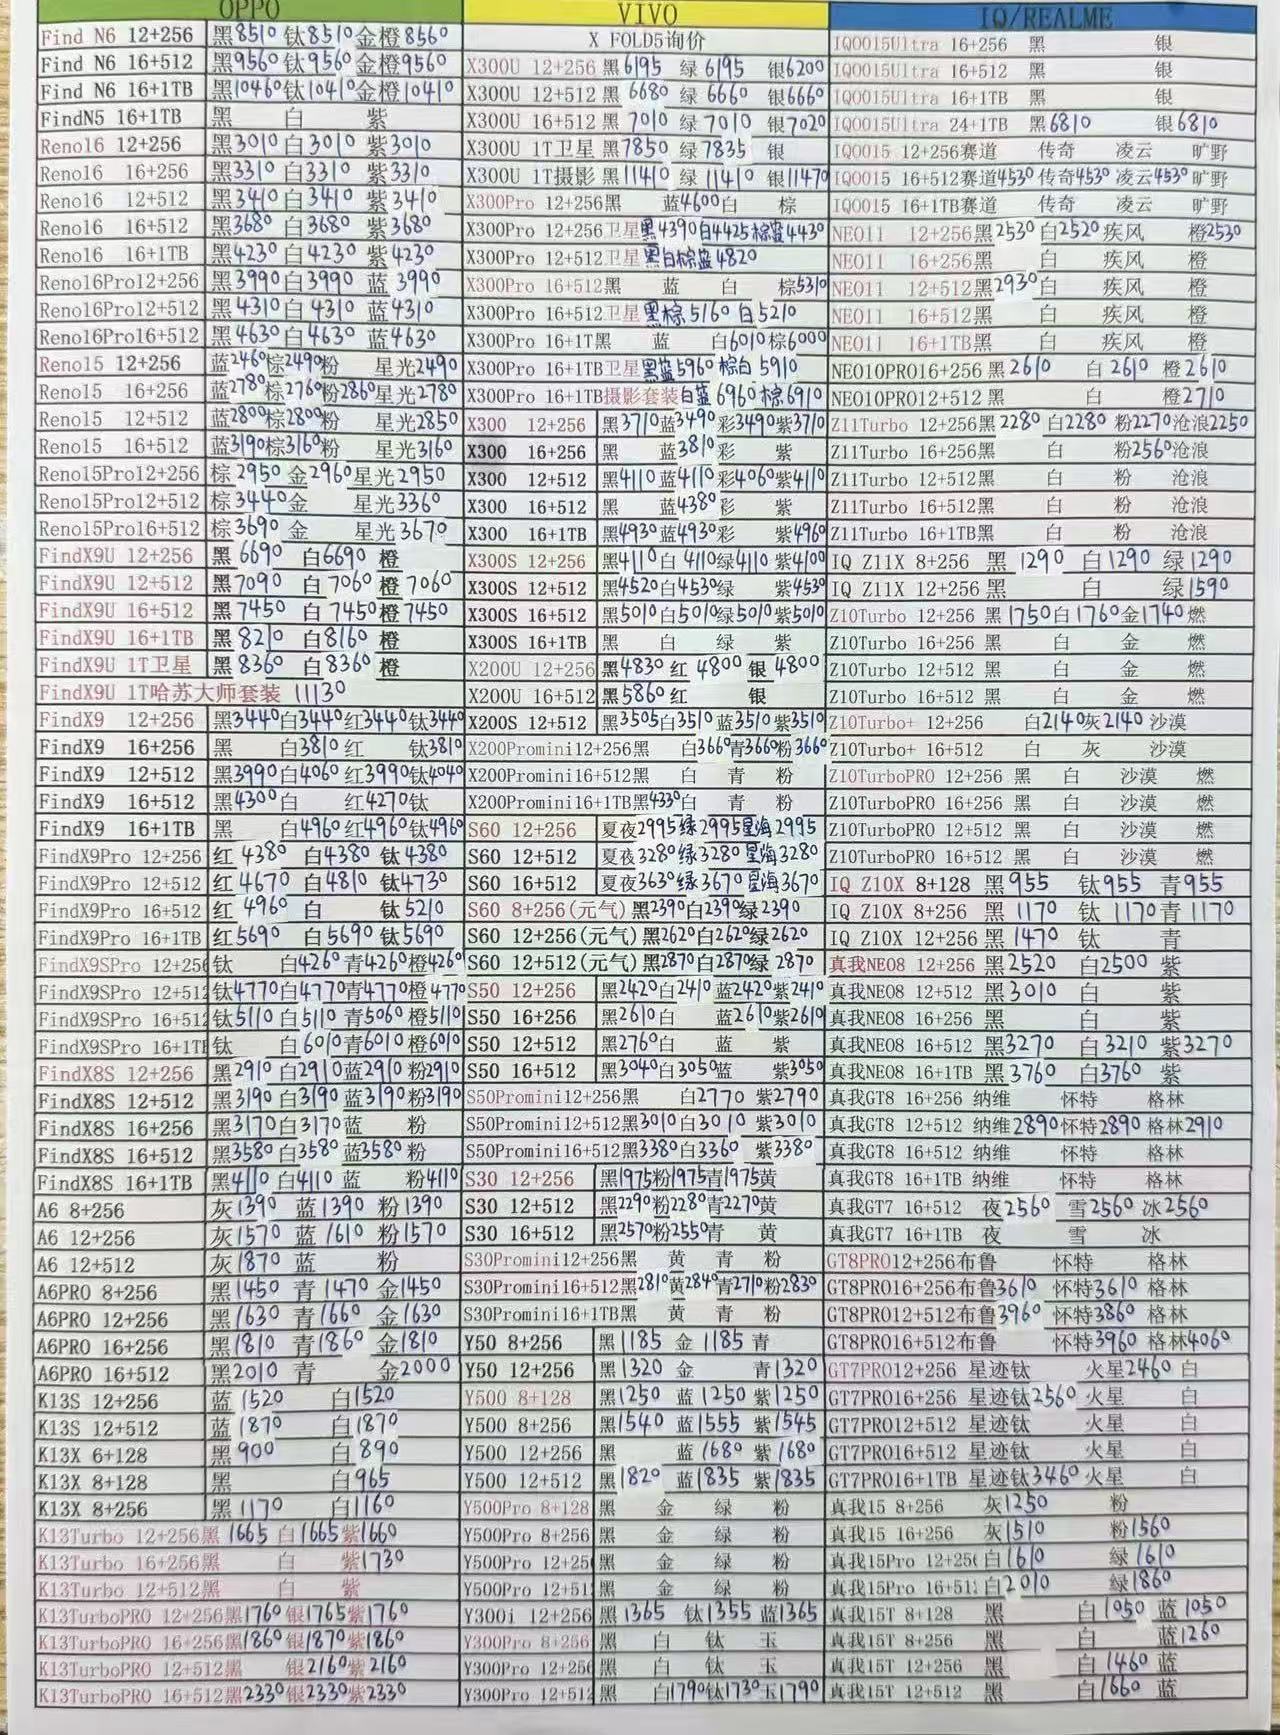 OPPO
Find N6 12+256 黑8510 钛8510 金橙8560
Find N6 16+512 黑9560 钛9560 金橙9560
Find N6 16+1TB 黑10460 钛10410 金橙10410
FindN5 16+1TB 黑 白 紫
Reno16 12+256 黑3010 白3010 紫3010
Reno16 16+256 黑3310 白3310 紫3310
Reno16 12+512 黑3410 白3410 紫3410
Reno16 16+512 黑3680 白3680 紫3680
Reno16 16+1TB 黑4230 白4230 紫4230
Reno16Pro12+256 黑3990 白3990 蓝3990
Reno16Pro12+512 黑4310 白4310 蓝4310
Reno16Pro16+512 黑4630 白4630 蓝4630
Reno15 12+256 蓝2460 棕2490 粉 星光2490
Reno15 16+256 蓝2780 棕2760 粉2860 星光2780
Reno15 12+512 蓝2800 棕2800 粉 星光2850
Reno15 16+512 蓝3190 棕3160 粉 星光3160
Reno15Pro12+256 棕2950 金2960 星光2950
Reno15Pro12+512 棕3440 金 星光3360
Reno15Pro16+512 棕3690 金 星光3670
FindX9U 12+256 黑6690 白6690 橙
FindX9U 12+512 黑7090 白7060 橙7060
FindX9U 16+512 黑7450 白7450 橙7450
FindX9U 16+1TB 黑8210 白8160 橙
FindX9U 1T卫星 黑8360 白8360 橙
FindX9U 1T哈苏大师套装 11130
FindX9 12+256 黑3440 白3440 红3440 钛3440
FindX9 16+256 黑 白3810 红 钛3810
FindX9 12+512 黑3990 白4060 红3990 钛4040
FindX9 16+512 黑4300 白 红4270 钛
FindX9 16+1TB 黑 白4960 红4960 钛4960
FindX9Pro 12+256 红4380 白4380 钛4380
FindX9Pro 12+512 红4670 白4810 钛4730
FindX9Pro 16+512 红4960 白 钛5210
FindX9Pro 16+1TB 红5690 白5690 钛5690
FindX9SPro 12+256 钛 白4260 青4260 橙4260
FindX9SPro 12+512 钛4770 白4770 青4770 橙4770
FindX9SPro 16+512 钛5110 白5110 青5060 橙5110
FindX9SPro 16+1TB 钛 白6010 青6010 橙6010
FindX8S 12+256 黑2910 白2910 蓝2910 粉2910
FindX8S 12+512 黑3190 白3190 蓝3190 粉3190
FindX8S 16+256 黑3170 白3170 蓝 粉
FindX8S 16+512 黑3580 白3580 蓝3580 粉
FindX8S 16+1TB 黑4110 白4110 蓝 粉4110
A6 8+256 灰1390 蓝1390 粉1390
A6 12+256 灰1570 蓝1610 粉1570
A6 12+512 灰1870 蓝 粉
A6PRO 8+256 黑1450 青1470 金1450
A6PRO 12+256 黑1630 青1660 金1630
A6PRO 16+256 黑1810 青1860 金1810
A6PRO 16+512 黑2010 青 金2000
K13S 12+256 蓝1520 白1520
K13S 12+512 蓝1870 白1870
K13X 6+128 黑900 白890
K13X 8+128 黑 白965
K13X 8+256 黑1170 白1160
K13Turbo 12+256黑1665 白1665 紫1660
K13Turbo 16+256黑 白 紫1730
K13Turbo 12+512黑 白 紫
K13TurboPRO 12+256黑1760 银1765 紫1760
K13TurboPRO 16+256黑1860 银1870 紫1860
K13TurboPRO 12+512黑 银2160 紫2160
K13TurboPRO 16+512黑2330 银2330 紫2330
VIVO
X FOLD5询价
X300U 12+256 黑6195 绿6195 银6200
X300U 12+512 黑6680 绿6660 银6660
X300U 16+512 黑7010 绿7010 银7020
X300U 1T卫星 黑7850 绿7835 银
X300U 1T摄影 黑11410 绿11410 银11470
X300Pro 12+256黑 蓝4600 白 棕
X300Pro 12+256卫星黑4390 白4425 棕蓝4430
X300Pro 12+512卫星黑白棕蓝4820
X300Pro 16+512黑 蓝 白 棕5310
X300Pro 16+512卫星黑棕5160 白5210
X300Pro 16+1T黑 蓝 白6010 棕6000
X300Pro 16+1TB卫星黑蓝5960 棕白5910
X300Pro 16+1TB摄影套装白蓝6960 棕6910
X300 12+256 黑3710 蓝3490 彩3490 紫3710
X300 16+256 黑 蓝3810 彩 紫
X300 12+512 黑4110 蓝4110 彩4060 紫4110
X300 16+512 黑 蓝4380 彩 紫
X300 16+1TB 黑4930 蓝4930 彩 紫4960
X300S 12+256 黑4110 白4110 绿4110 紫4100
X300S 12+512 黑4520 白4530 绿 紫4530
X300S 16+512 黑5010 白5010 绿5010 紫5010
X300S 16+1TB 黑 白 绿 紫
X200U 12+256 黑4830 红4800 银4800
X200U 16+512 黑5860 红 银
X200S 12+512 黑3505 白3510 蓝3510 紫3510
X200Promini12+256黑 白3660 青3660 粉3660
X200Promini16+512黑 白 青 粉
X200Promini16+1TB黑4330 白 青 粉
S60 12+256 夏夜2995 绿2995 星海2995
S60 12+512 夏夜3280 绿3280 星海3280
S60 16+512 夏夜3630 绿3670 星海3670
S60 8+256(元气) 黑2390 白2390 绿2390
S60 12+256(元气) 黑2620 白2620 绿2620
S60 12+512(元气) 黑2870 白2870 绿2870
S50 12+256 黑2420 白2410 蓝2420 紫2410
S50 16+256 黑2610 白 蓝2610 紫2610
S50 12+512 黑2760 白 蓝 紫
S50 16+512 黑3040 白3050 蓝 紫3050
S50Promini12+256黑 白2770 紫2790
S50Promini12+512黑3010 白3010 紫3010
S50Promini16+512黑3380 白3360 紫3380
S30 12+256 黑1975 粉1975 青1975 黄
S30 12+512 黑2290 粉2280 青2270 黄
S30 16+512 黑2570 粉2550 青 黄
S30Promini12+256黑 黄 青 粉
S30Promini16+512黑2810 黄2840 青2710 粉2830
S30Promini16+1TB黑 黄 青 粉
Y50 8+256 黑1185 金1185 青
Y50 12+256 黑1320 金 青1320
Y500 8+128 黑1250 蓝1250 紫1250
Y500 8+256 黑1540 蓝1555 紫1545
Y500 12+256 黑 蓝1680 紫1680
Y500 12+512 黑1820 蓝1835 紫1835
Y500Pro 8+128 黑 金 绿 粉
Y500Pro 8+256 黑 金 绿 粉
Y500Pro 12+256 黑 金 绿 粉
Y500Pro 12+512 黑 金 绿 粉
Y300i 12+256 黑1365 钛1355 蓝1365
Y300Pro 8+256 黑 白 钛 玉
Y300Pro 12+256 黑 白 钛 玉
Y300Pro 12+512 黑 白1790 钛1730 玉1790
IQ/REALME
IQOO15Ultra 16+256 黑 银
IQOO15Ultra 16+512 黑 银
IQOO15Ultra 16+1TB 黑 银
IQOO15Ultra 24+1TB 黑6810 银6810
IQOO15 12+256赛道 传奇 凌云 旷野
IQOO15 16+512赛道4530 传奇4530 凌云4530 旷野
IQOO15 16+1TB赛道 传奇 凌云 旷野
NEO11 12+256黑2530 白2520 疾风 橙2530
NEO11 16+256黑 白 疾风 橙
NEO11 12+512黑2930 白 疾风 橙
NEO11 16+512黑 白 疾风 橙
NEO11 16+1TB黑 白 疾风 橙
NEO10PRO16+256 黑2610 白2610 橙2610
NEO10PRO12+512 黑 白 橙2710
Z11Turbo 12+256黑2280 白2280 粉2270 沧浪2250
Z11Turbo 16+256黑 白 粉2560 沧浪
Z11Turbo 12+512黑 白 粉 沧浪
Z11Turbo 16+512黑 白 粉 沧浪
Z11Turbo 16+1TB黑 白 粉 沧浪
IQ Z11X 8+256 黑1290 白1290 绿1290
IQ Z11X 12+256 黑 白 绿1590
Z10Turbo 12+256 黑1750 白1760 金1740 燃
Z10Turbo 16+256 黑 白 金 燃
Z10Turbo 12+512 黑 白 金 燃
Z10Turbo 16+512 黑 白 金 燃
Z10Turbo+ 12+256 白2140 灰2140 沙漠
Z10Turbo+ 16+512 白 灰 沙漠
Z10TurboPRO 12+256 黑 白 沙漠 燃
Z10TurboPRO 16+256 黑 白 沙漠 燃
Z10TurboPRO 12+512 黑 白 沙漠 燃
Z10TurboPRO 16+512 黑 白 沙漠 燃
IQ Z10X 8+128 黑955 钛955 青955
IQ Z10X 8+256 黑1170 钛1170 青1170
IQ Z10X 12+256 黑1470 钛 青
真我NEO8 12+256 黑2520 白2500 紫
真我NEO8 12+512 黑3010 白 紫
真我NEO8 16+256 黑 白 紫
真我NEO8 16+512 黑3270 白3210 紫3270
真我NEO8 16+1TB 黑3760 白3760 紫
真我GT8 16+256 纳维 怀特 格林
真我GT8 12+512 纳维2890 怀特2890 格林2910
真我GT8 16+512 纳维 怀特 格林
真我GT8 16+1TB 纳维 怀特 格林
真我GT7 16+512 夜2560 雪2560 冰2560
真我GT7 16+1TB 夜 雪 冰
GT8PRO12+256布鲁 怀特 格林
GT8PRO16+256布鲁3610 怀特3610 格林
GT8PRO12+512布鲁3960 怀特3860 格林
GT8PRO16+512布鲁 怀特3960 格林4060
GT7PRO12+256 星迹钛 火星2460 白
GT7PRO16+256 星迹钛2560 火星 白
GT7PRO12+512 星迹钛 火星 白
GT7PRO16+512 星迹钛 火星 白
GT7PRO16+1TB 星迹钛3460 火星 白
真我15 8+256 灰1250 粉
真我15 16+256 灰1510 粉1560
真我15Pro 12+256 白1610 绿1610
真我15Pro 16+512 白2010 绿1860
真我15T 8+128 黑 白1050 蓝1050
真我15T 8+256 黑 白 蓝1260
真我15T 12+256 黑 白1460 蓝
真我15T 12+512 黑 白1660 蓝